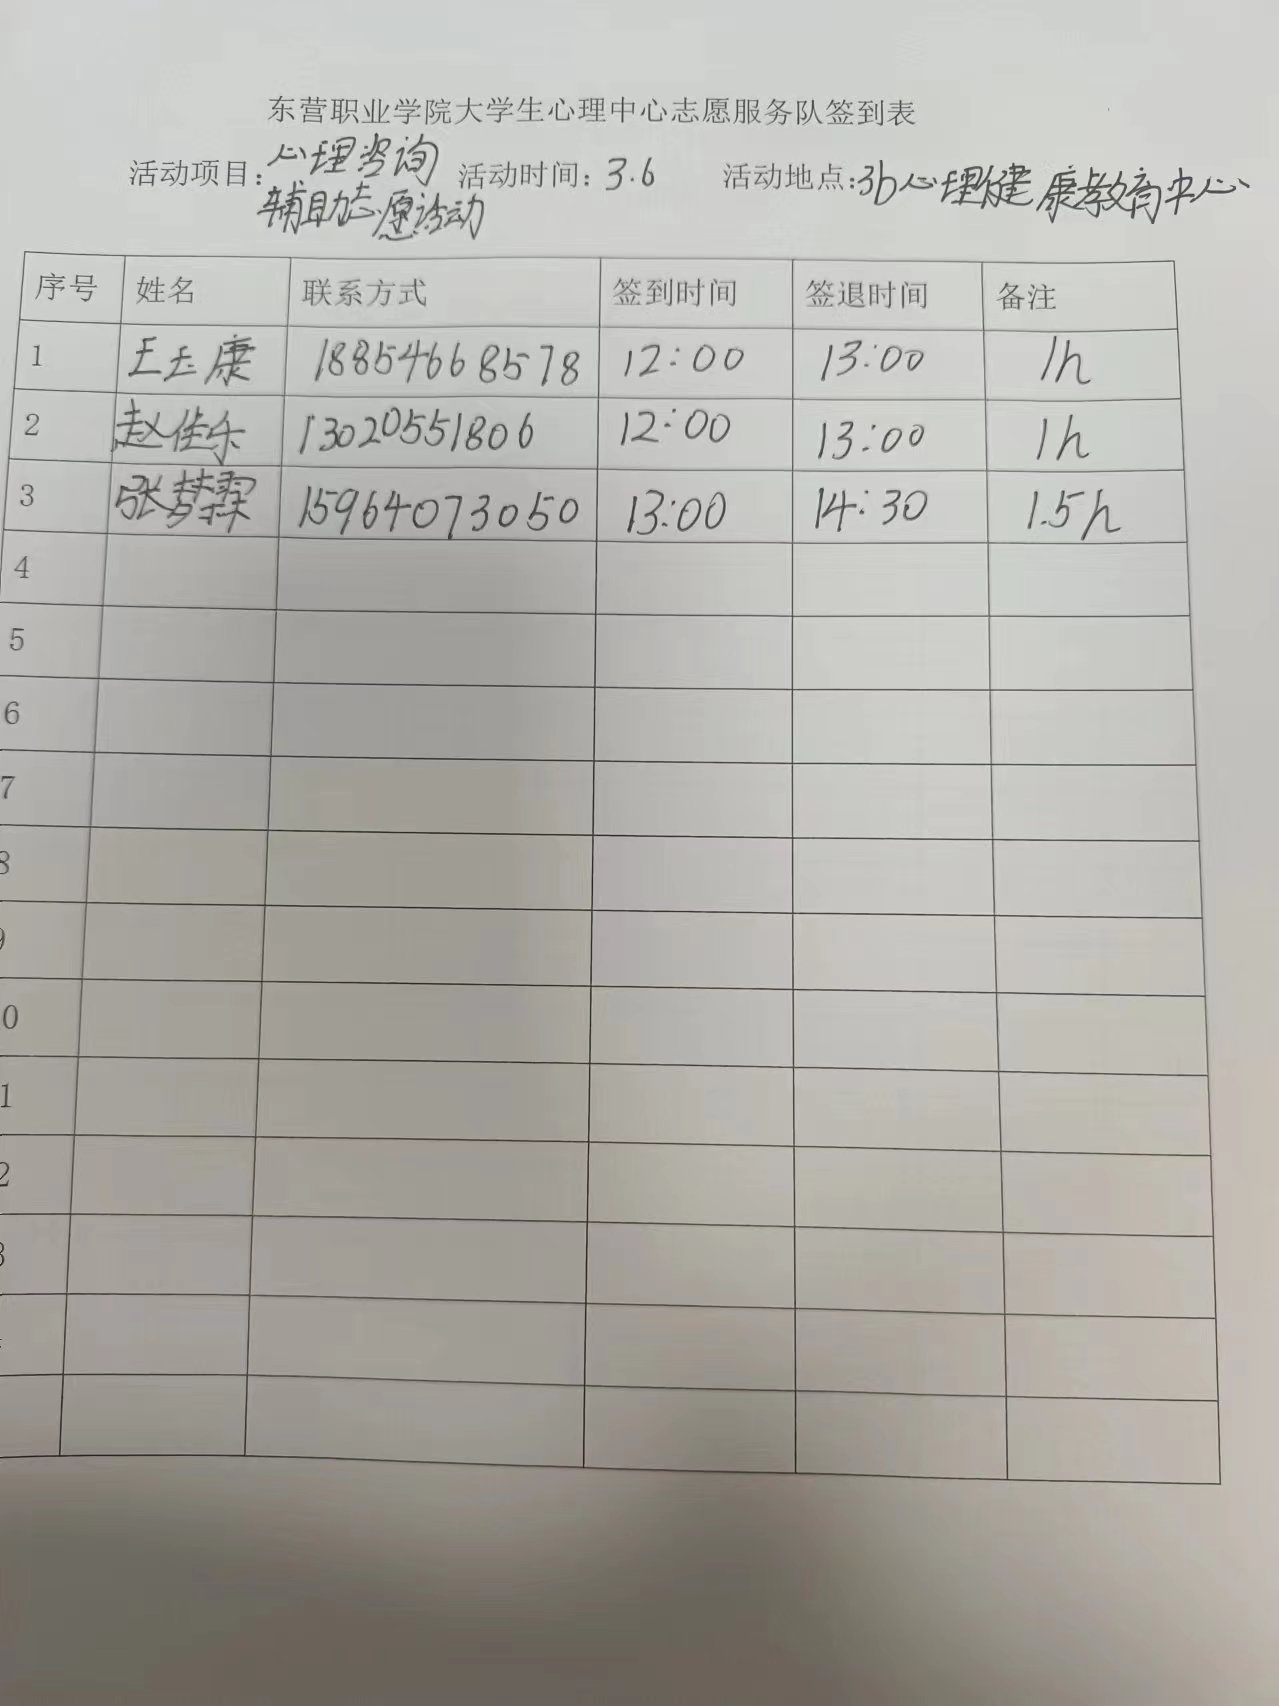 东营职业学院大学生心理中心志愿服务队签到表
活动项目：心理咨询 活动时间：3.6 活动地点：3b心理健康教育中心
辅助志愿活动
序号 姓名 联系方式 签到时间 签退时间 备注
1 王玉康 18854668578 12:00 13:00 1h
2 赵佳乐 13020551806 12:00 13:00 1h
3 张梦霖 15964073050 13:00 14:30 1.5h
4
5
6
7
8
9
0
1
2
3